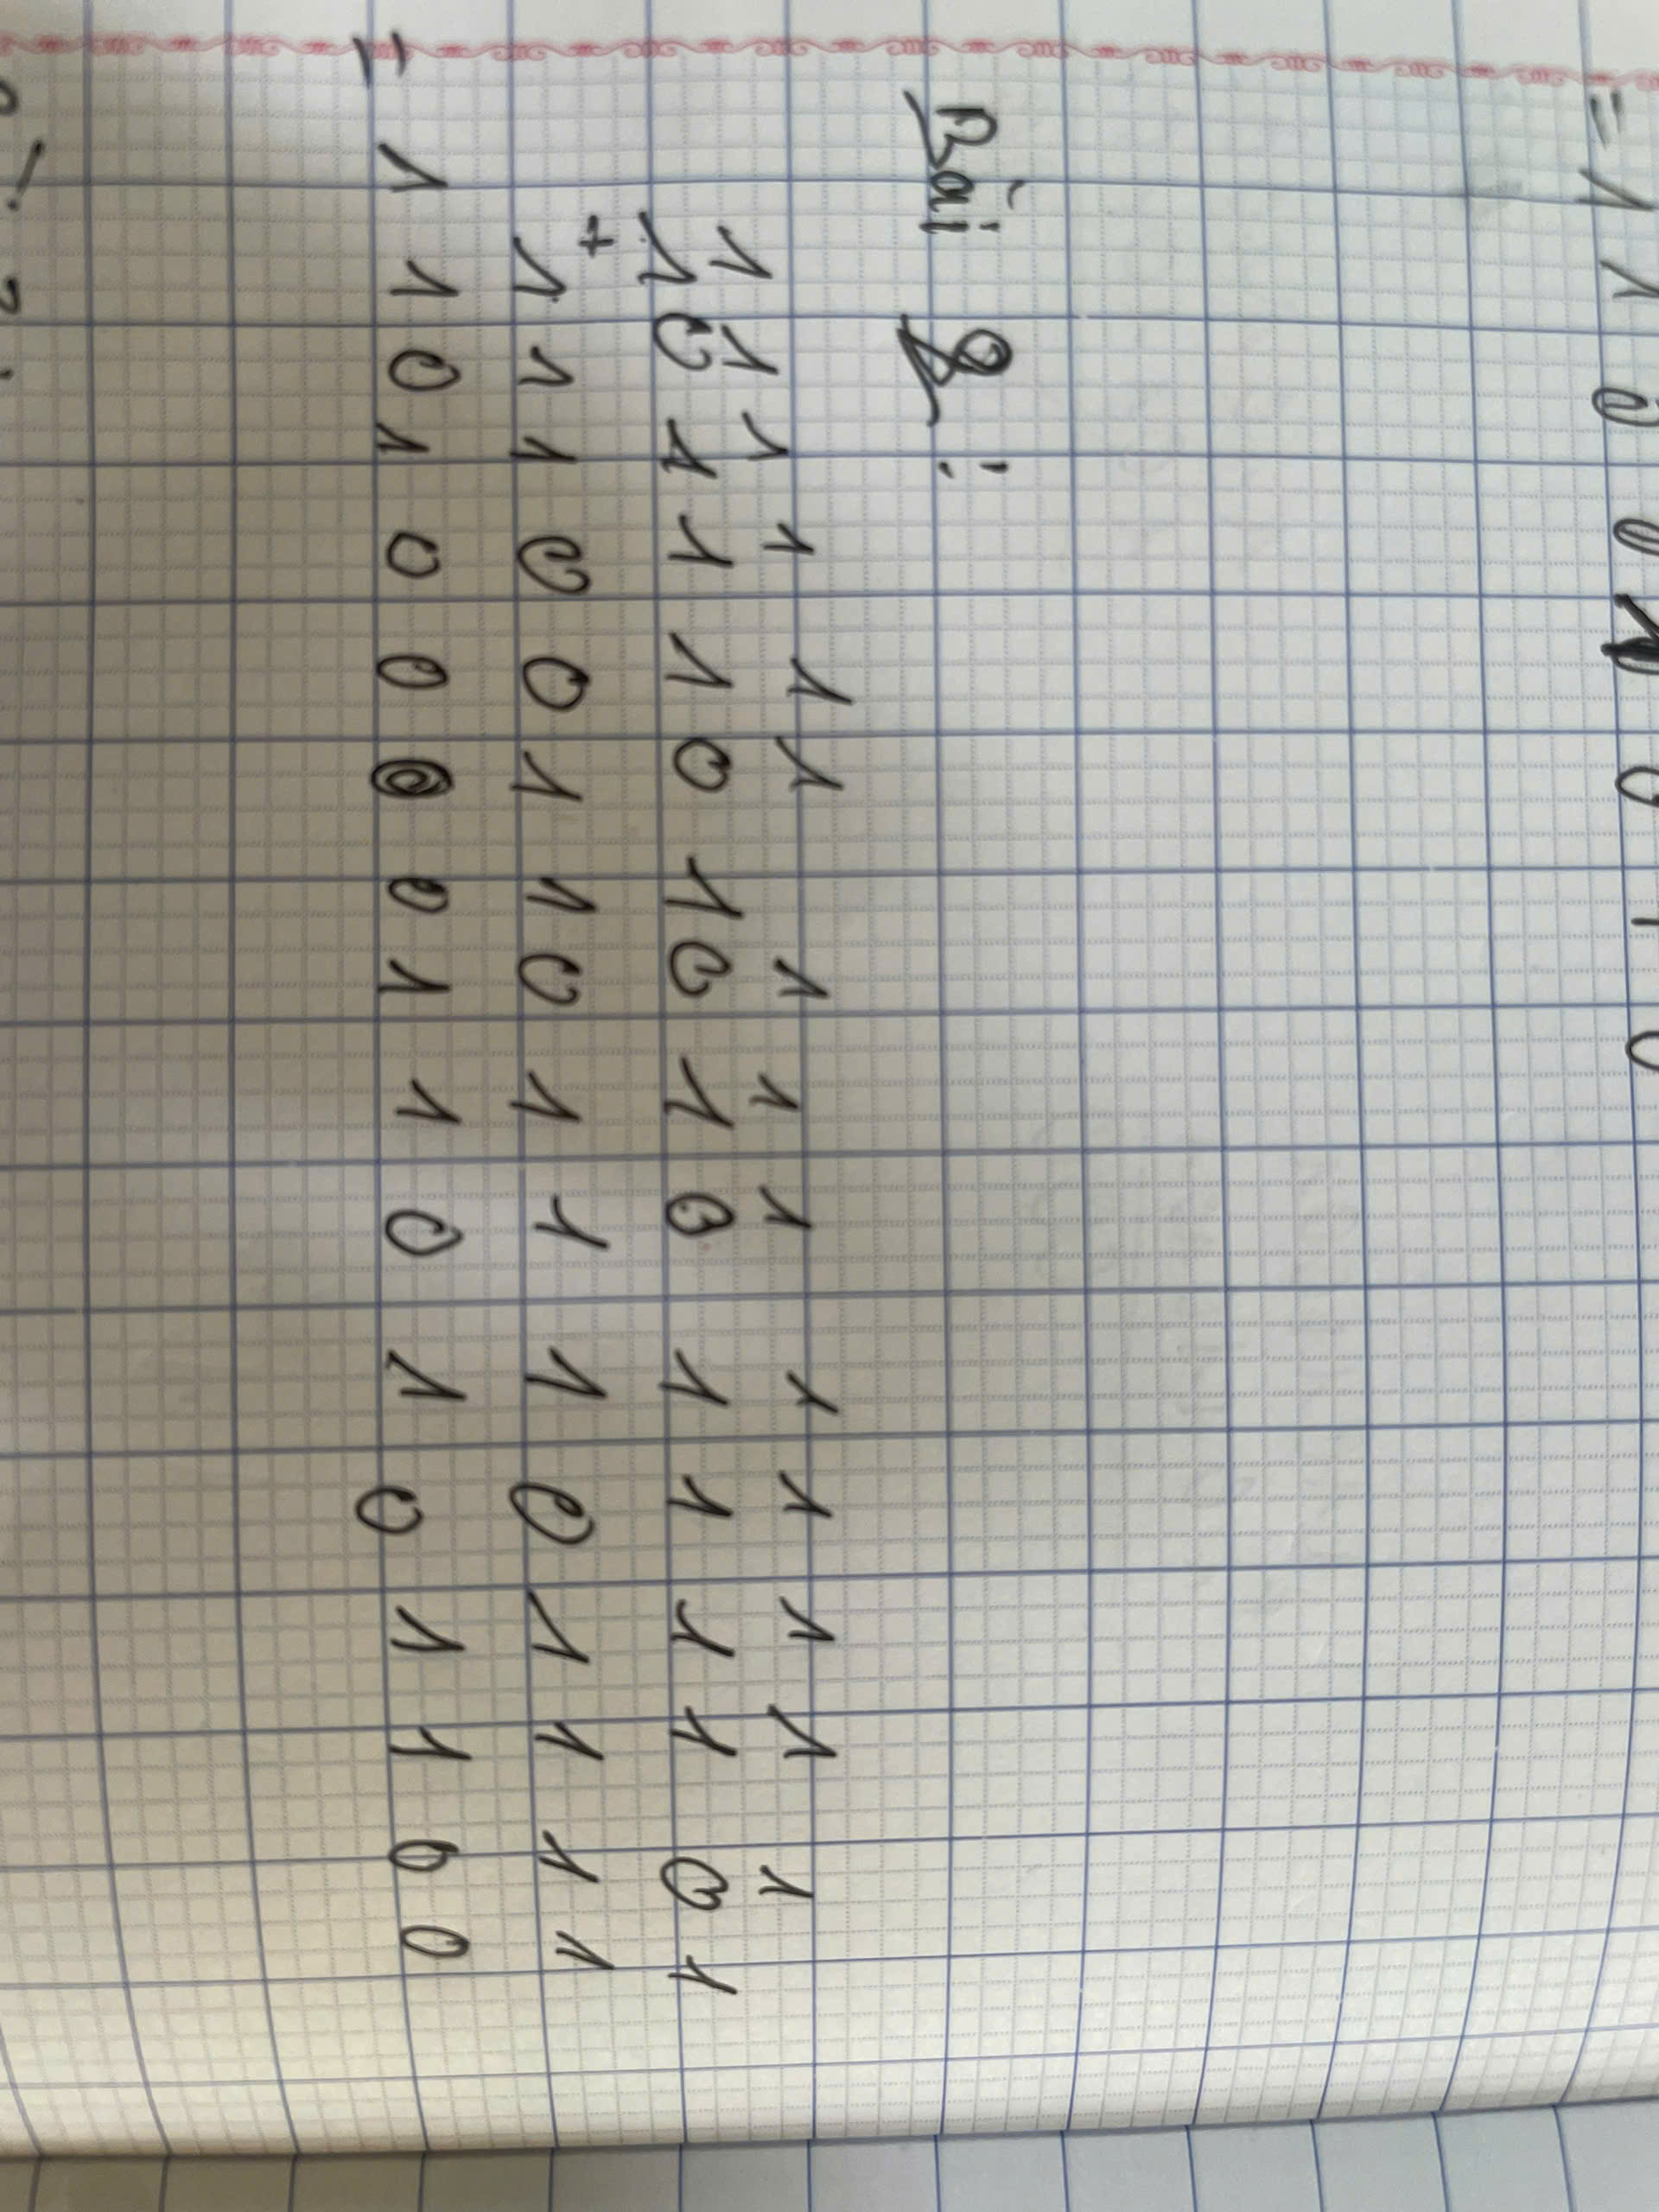 = 1 1 0 0 1 0 1 0
Bài 2 :
1 1 1 1 1 1 1 1 1 1 1 1 1 1
1 0 1 1 1 0 1 0 1 0 1 1 1 1 0 1
+
1 1 1 0 0 1 1 0 1 1 1 0 1 1 1 1
= 1 1 0 1 0 0 0 0 1 1 0 1 0 1 1 0 0